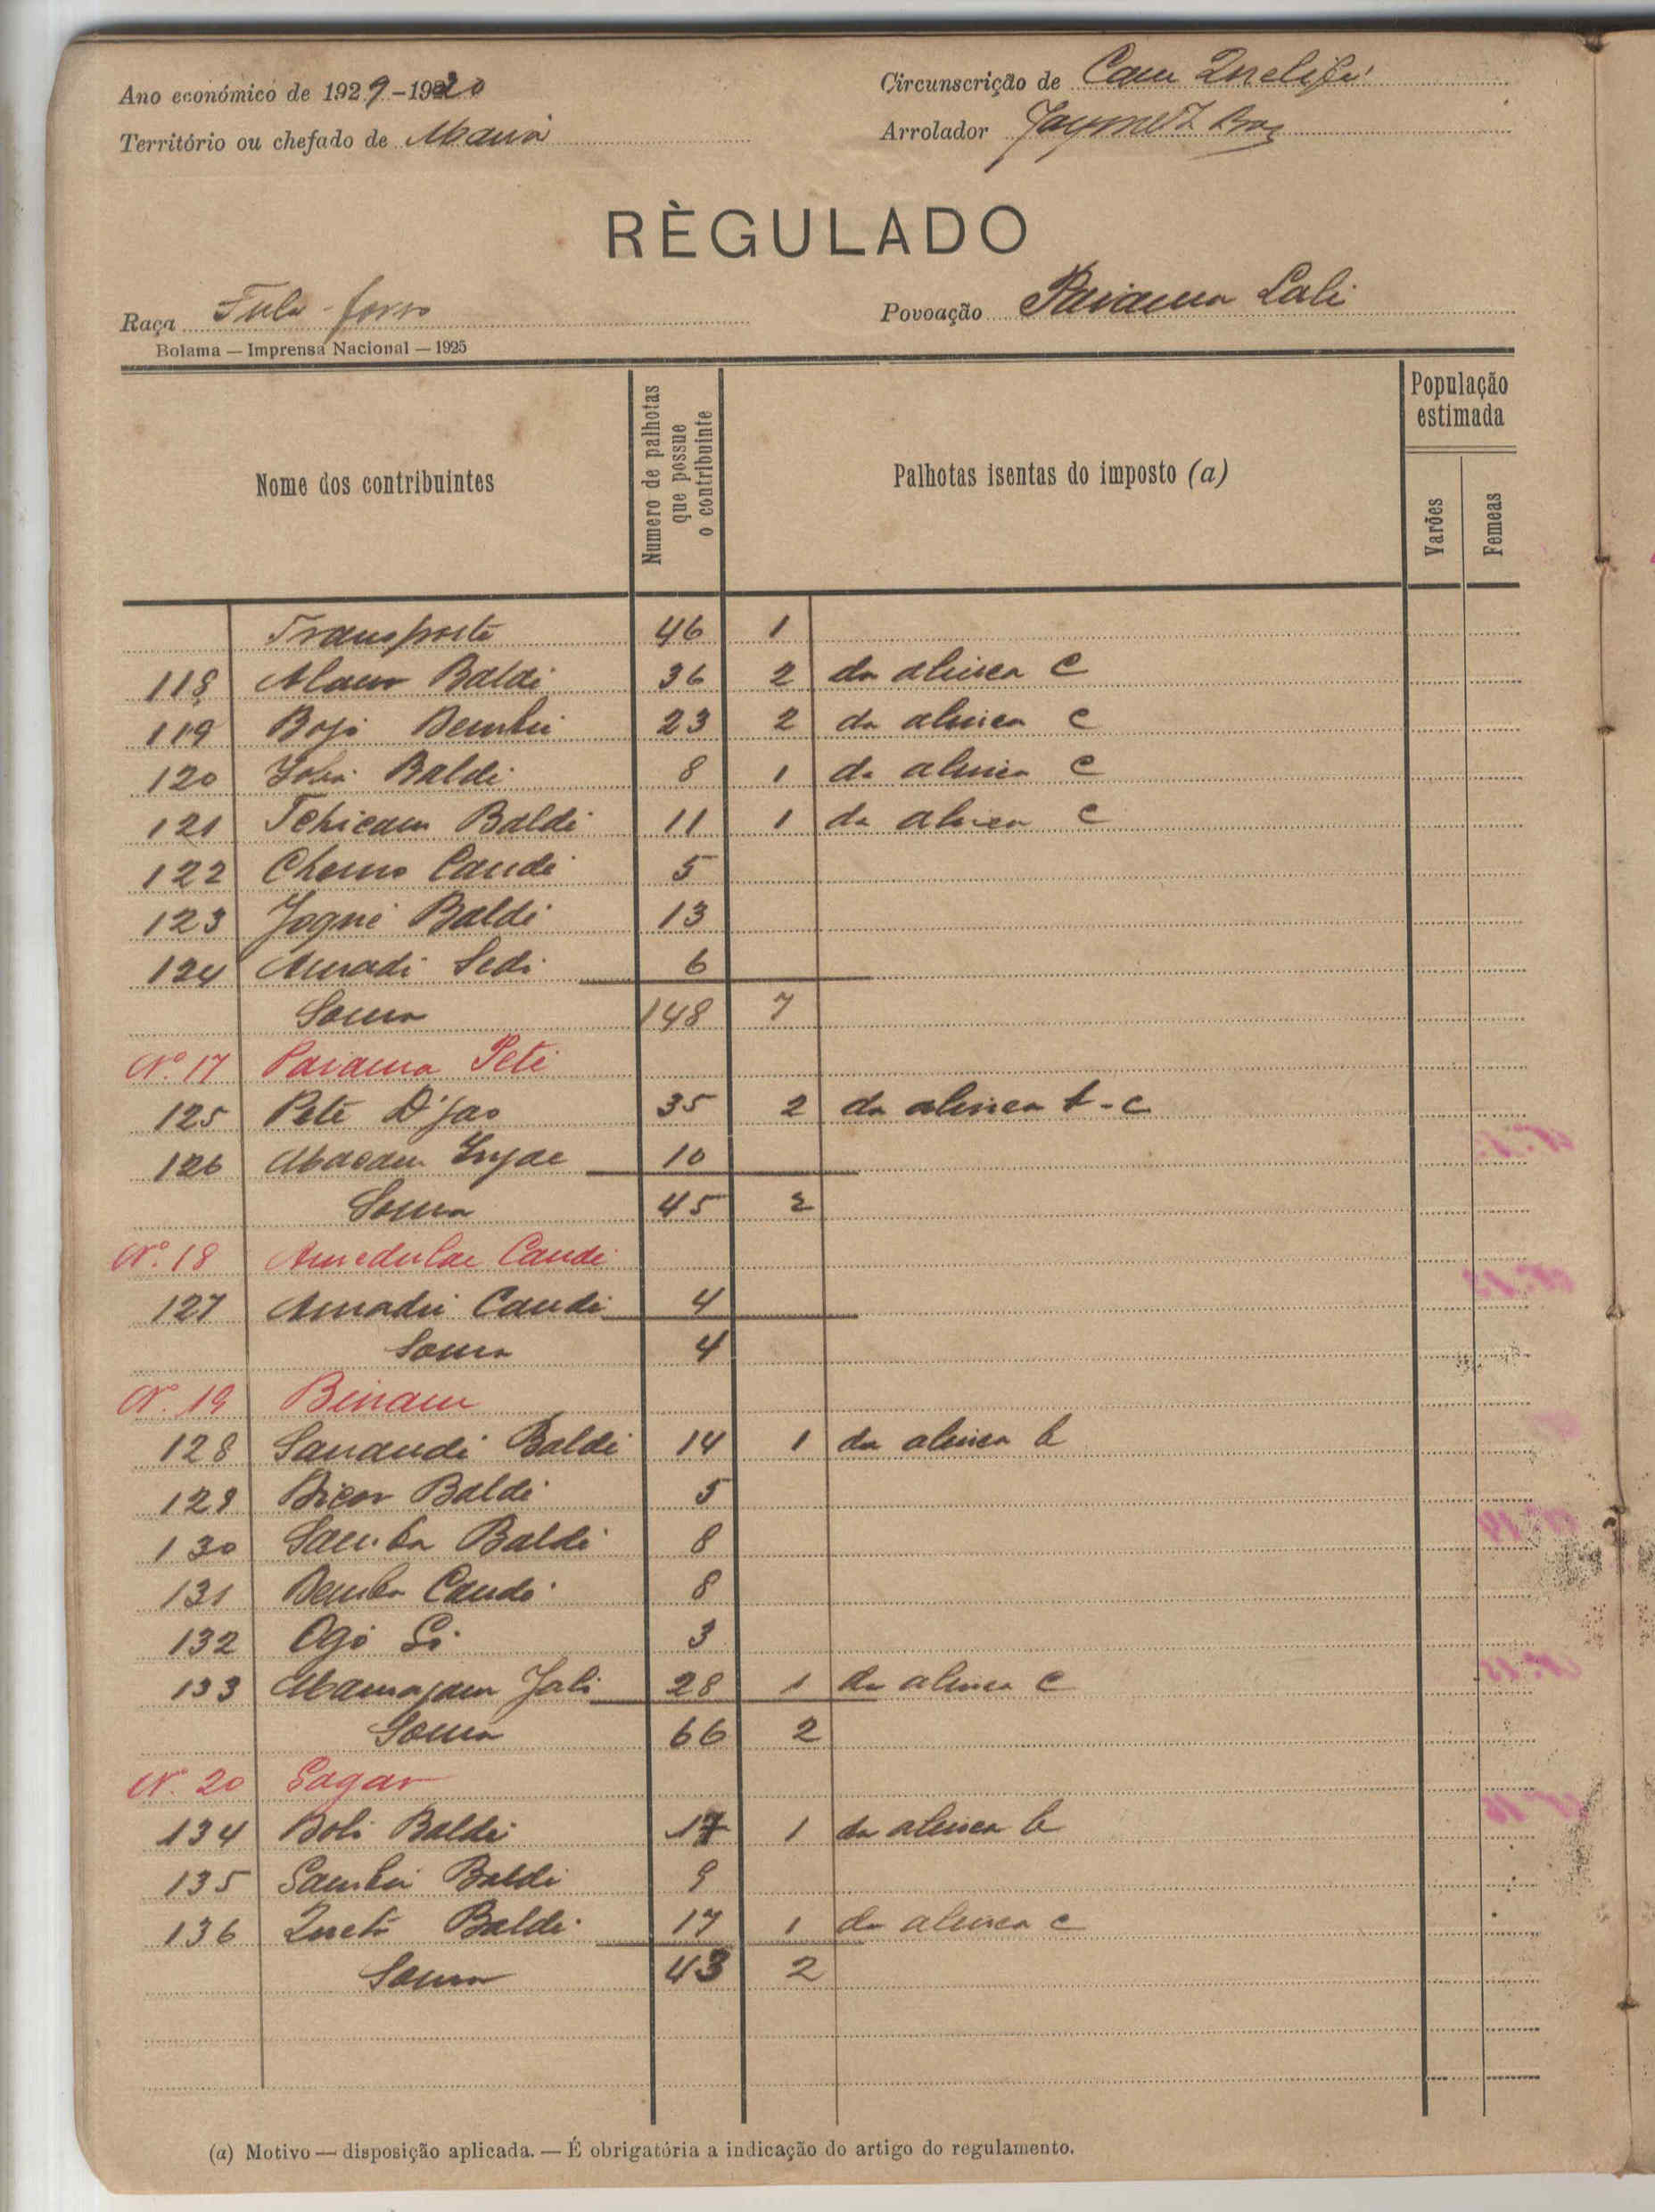 Ano económico de 1929-1930
Circunscrição de
Território ou chefado de
Arrolador
RÈGULADO
Raça Fula-forro
Povoação Paiama Lali
Bolama — Imprensa Nacional — 1925
Nome dos contribuintes
Numero de palhotas que possue o contribuinte
Palhotas isentas do imposto (a)
População estimada
Varões
Femeas
Transporte 46 1
118 Baldi 36 2 da alinea c
119 23 2 da alinea c
120 Baldi 8 1 da alinea c
121 Baldi 11 1 da alinea c
122 Candi 5
123 Baldi 13
124 Amadi 6
Soma 148 7
Nº 17 Paiama Peti
125 Peti D'jao 35 2 da alinea b-c
126 10
Soma 45 2
Nº 18 Candi
127 Amadú Candi 4
Soma 4
Nº 19
128 Baldi 14 1 da alinea b
129 Baldi 5
130 Samba Baldi 8
131 Demba Candi 8
132 3
133 Jali 28 1 da alinea c
Soma 66 2
Nº 20
134 Boli Baldi 17 1 da alinea b
135 Baldi 9
136 Baldi 17 1 da alinea c
Soma 43 2
(a) Motivo — disposição aplicada. — É obrigatória a indicação do artigo do regulamento.